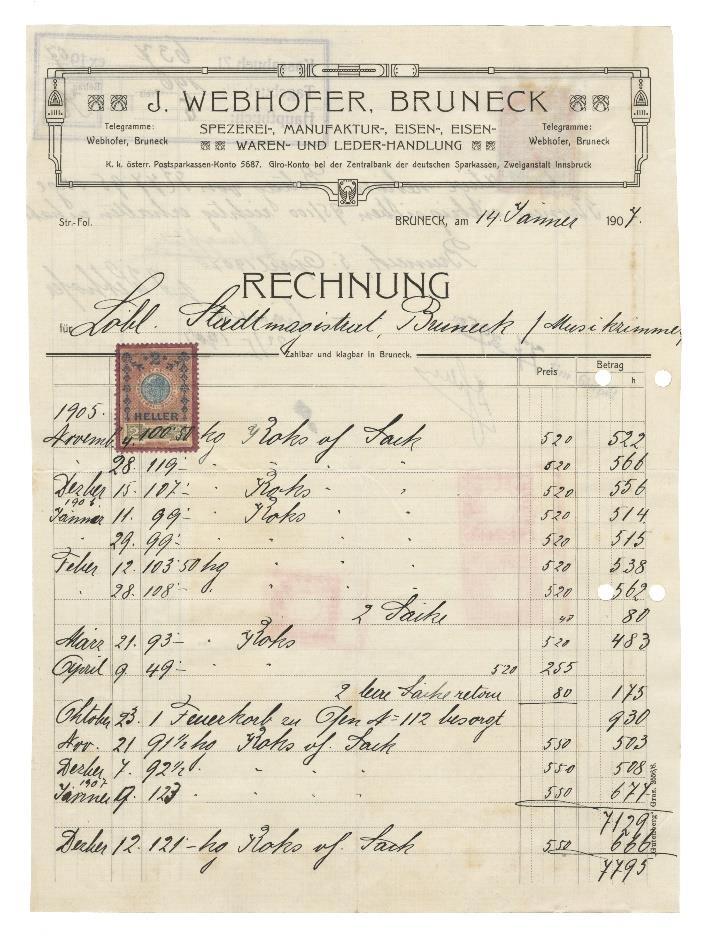 J. WEBHOFER, BRUNECK
Telegramme: Webhofer, Bruneck
SPEZEREI-, MANUFAKTUR-, EISEN-, EISEN-
WAREN- UND LEDER-HANDLUNG
Telegramme: Webhofer, Bruneck
K. k. österr. Postsparkassen-Konto 5687. Giro-Konto bei der Zentralbank der deutschen Sparkassen, Zweiganstalt Innsbruck
Str.-Fol.
BRUNECK, am 14. Jänner 1907.
RECHNUNG
für Löbl. Stadtmagistrat, Bruneck / Musikzimmer
Zahlbar und klagbar in Bruneck.
Preis Betrag
h
2
HELLER
1905.
Novemb 4 100·50 kg Koks of Sack 520 522
" 28. 119·- " " " 520 566
Dezber 15. 107·- " Koks " " 520 556
1906
Jänner 11. 99·- " Koks " " 520 514
" 29. 99·- " " " " 520 515
Feber 12. 103·50 kg " " " 520 538
" 28. 108·- " " " " 520 562
2 Säcke 40 80
März 21. 93·- " Koks 520 483
April 9. 49·- " " 520 255
2 leere Säcke retour 80 175
Oktober 23. 1 Feuerkorb zu Ofen No 112 besorgt 930
Nov. 21 91½ kg Koks of. Sack 550 503
Dezber 7. 92½ " " " " 550 508
1907
Jänner 9. 123 " " " " 550 677
7129
Dezber 12. 121·- kg Koks of. Sack 550 666
7795